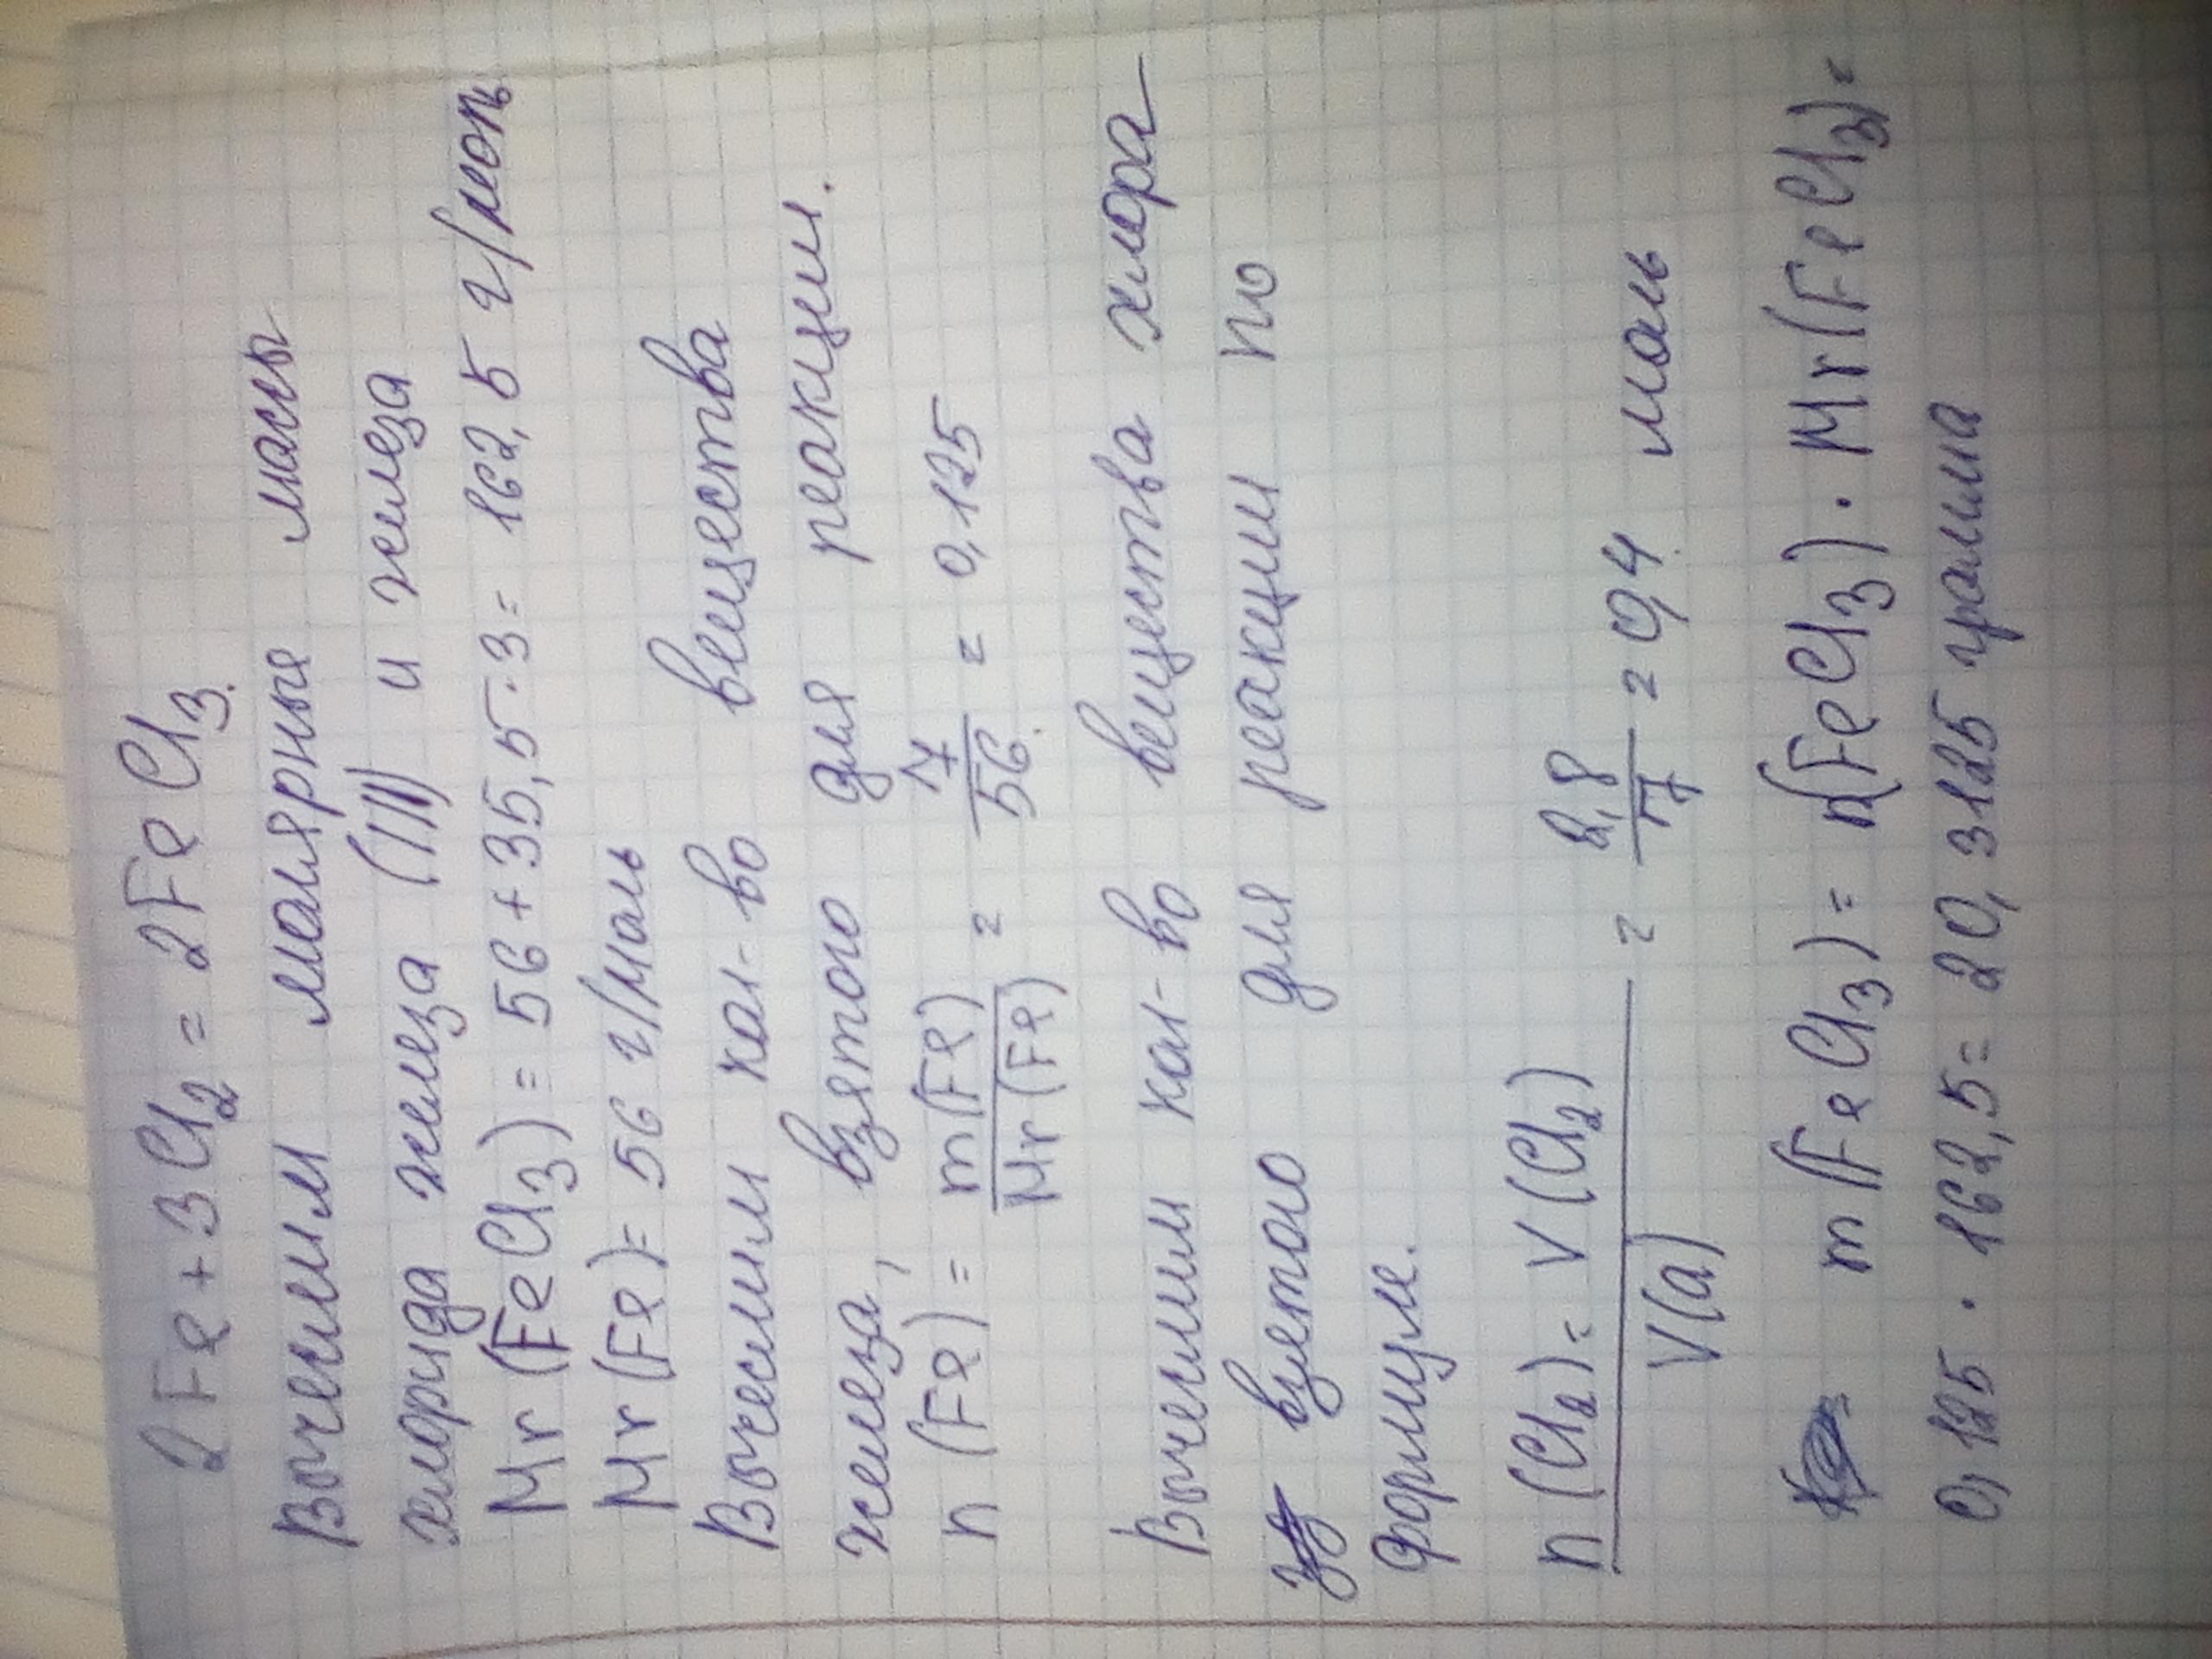 2Fe + 3Cl2 = 2FeCl3.
Вычислим малярные массы
хлорида железа (III) и железа
Mr (FeCl3) = 56 + 35,5 · 3 = 162,5 г/моль
Mr (Fe) = 56 г/маль
Вычеслим кал-во вещества
железа, взятого для реакции.
n (Fe) = m(Fe) / Mr(Fe) = 7 / 56 = 0,125
Вычеслим кал-во вещества хлора
взятого для реакции по
формуле.
n (Cl2) = V (Cl2) / V(a) = 2,8 / 7 = 0,4 маль
m (FeCl3) = n(FeCl3) · Mr(FeCl3) =
0,125 · 162,5 = 20,3125 грамма